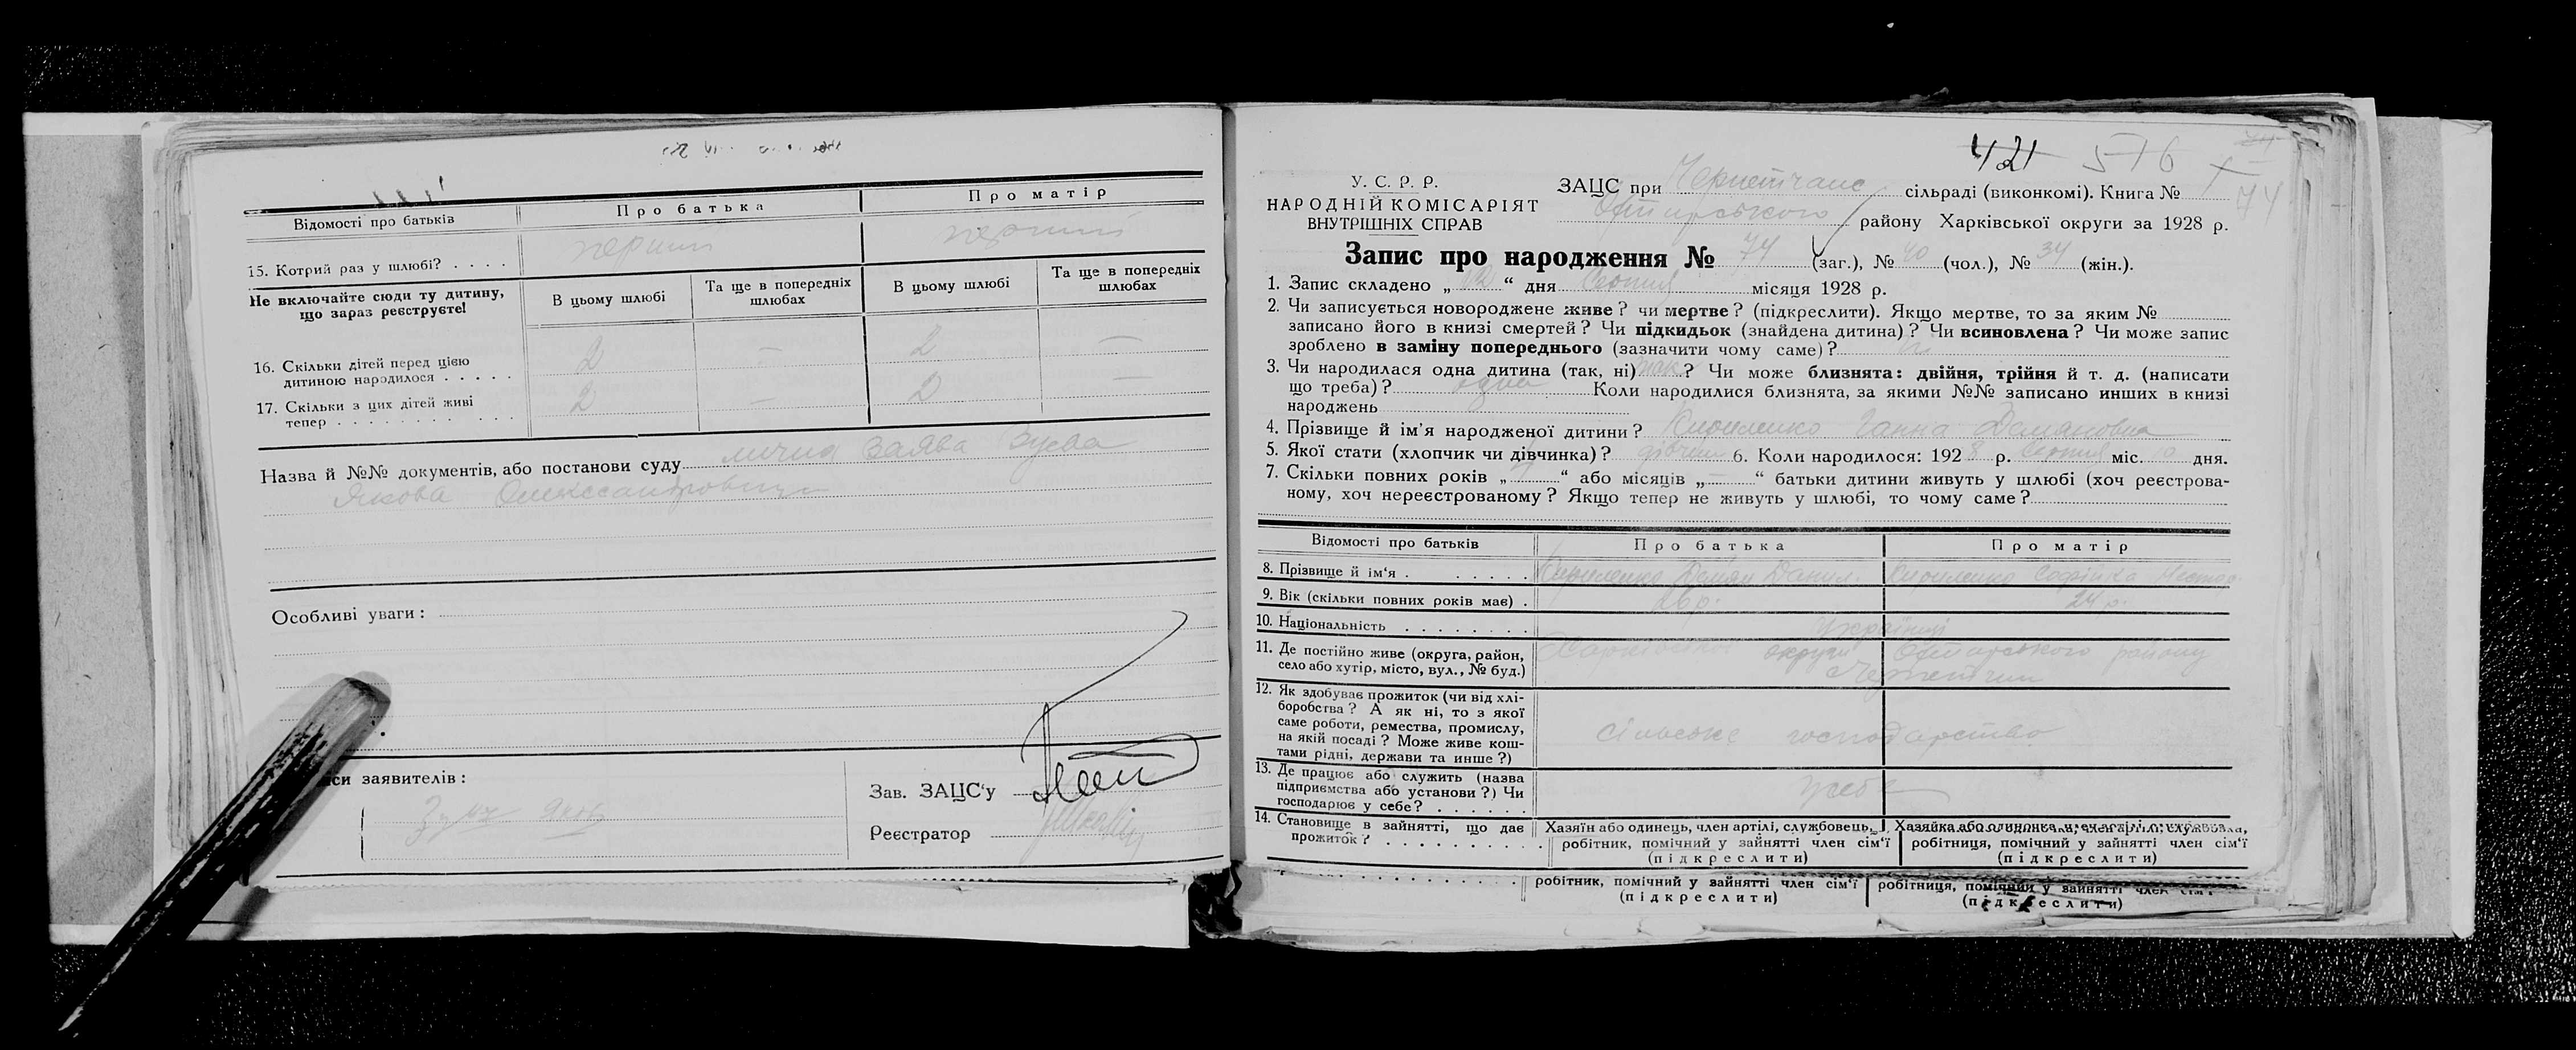 Відомості про батьків
Про батька
Про матір
15. Котрий раз у шлюбі? . . . .
перший
перший
Не включайте сюди ту дитину,
що зараз реєструєте!
В цьому шлюбі
Та ще в попередніх
шлюбах
В цьому шлюбі
Та ще в попередніх
шлюбах
16. Скільки дітей перед цією
дитиною народилося . . . . .
2
—
2
—
17. Скільки з цих дітей живі
тепер . . . . . . . .
2
—
2
—
Назва й №№ документів, або постанови суду
заява
Якова
Особливі уваги:
заявителів:
Зав. ЗАЦС'у
Реєстратор
421 576
74
У. С. Р. Р.
НАРОДНІЙ КОМІСАРІЯТ
ВНУТРІШНІХ СПРАВ
ЗАЦС при сільраді (виконкомі). Книга №
району Харківської округи за 1928 р.
Запис про народження № 74 (заг.), № 40 (чол.), № 34 (жін.).
1. Запис складено „12“ дня місяця 1928 р.
2. Чи записується новороджене живе? чи мертве? (підкреслити). Якщо мертве, то за яким №
записано його в книзі смертей? Чи підкидьок (знайдена дитина)? Чи всиновлена? Чи може запис
зроблено в заміну попереднього (зазначити чому саме)?
3. Чи народилася одна дитина (так, ні) так? Чи може близнята: двійня, трійня й т. д. (написати
що треба)? одна Коли народилися близнята, за якими №№ записано инших в книзі
народжень
4. Прізвище й ім'я народженої дитини? Кириленко Ганна
5. Якої стати (хлопчик чи дівчинка)? 6. Коли народилося: 1928 р. міс. дня.
7. Скільки повних років „ “ або місяців „—“ батьки дитини живуть у шлюбі (хоч реєстрова-
ному, хоч нереєстрованому? Якщо тепер не живуть у шлюбі, то чому саме?
Відомості про батьків
Про батька
Про матір
8. Прізвище й ім'я . . . . . .
9. Вік (скільки повних років має) .
26 р.
24 р.
10. Національність . . . . . . . .
Українці
11. Де постійно живе (округа, район,
село або хутір, місто, вул., № буд.)
округи району
12. Як здобуває прожиток (чи від хлі-
боробства? А як ні, то з якої
саме роботи, ремества, промислу,
на якій посаді? Може живе кош-
тами рідні, держави та инше?)
сільське господарство
13. Де працює або служить (назва
підприємства або установи?) Чи
господарює у себе? . . . . . .
у себе
14. Становище в зайнятті, що дає
прожиток? . . . . . . . . . .
Хазяїн або одинець, член артілі, службовець,
робітник, помічний у зайнятті член сім'ї
(підкреслити)
Хазяйка або одинока, член артілі, службова,
робітниця, помічний у зайнятті член сім'ї
(підкреслити)
робітник, помічний у зайнятті член сім'ї
(підкреслити)
робітниця, помічний у зайнятті член сім'ї
(підкреслити)